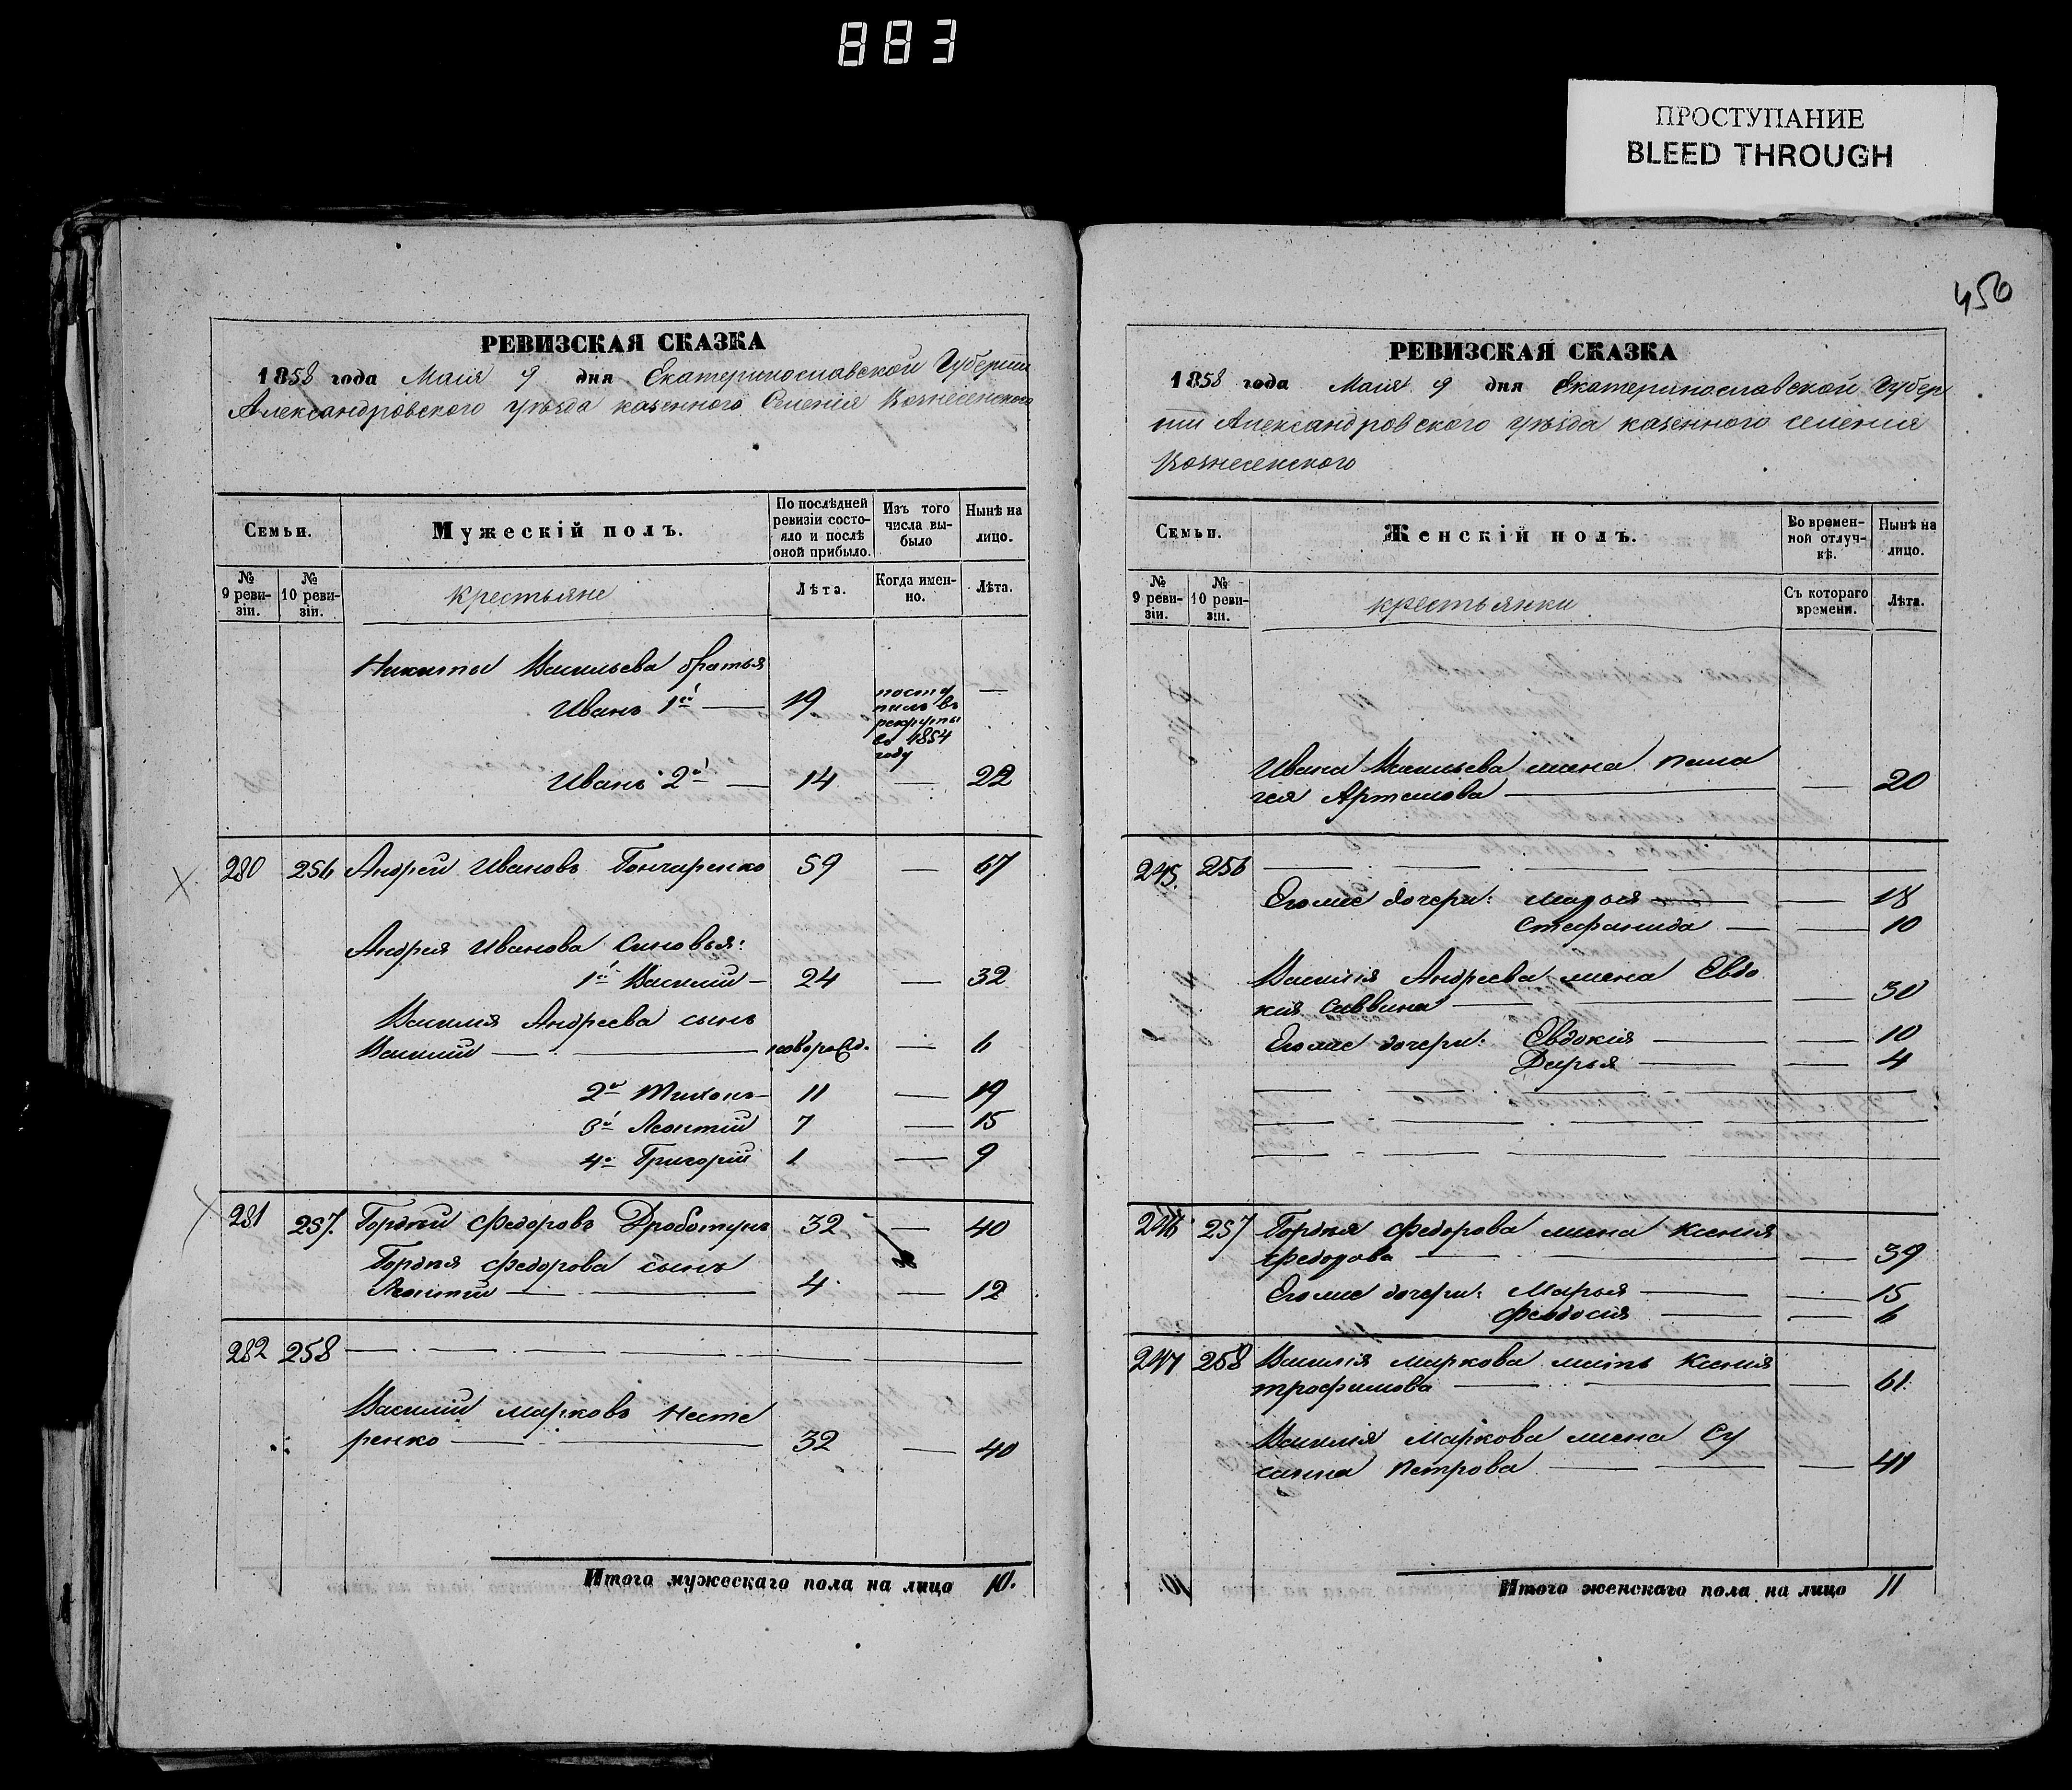 883
ПРОСТУПАНИЕ
BLEED THROUGH
456
РЕВИЗСКАЯ СКАЗКА
1858 года Маія 9 дня Екатеринославской Губерніи
Александровского уѣзда казенного Селенія Вознесенского
Семьи.
Мужескій полъ.
По послѣдней ревизіи состояло и послѣ оной прибыло.
Изъ того числа выбыло
Нынѣ на лицо.
№ 9 ревизіи.
№ 10 ревизіи.
крестьяне
Лѣта.
Когда именно.
Лѣта.
Никиты Васильева братья
Иванъ 1й — 19 поступилъ въ рекруты въ 1854 году —
Иванъ 2й — 14 — 22
280 256 Андрей Ивановъ Гончаренко 59 — 67
Андрея Иванова сыновья:
1й Василий — 24 — 32
Василія Андреева сынъ
Василий — новорожд. — 6
2й Тихонъ — 11 — 19
3й Леонтій 7 — 15
4й Григорій 1 — 9
281 257. Гордѣй Федоровъ Дроботунъ 32 — 40
Гордѣя Федорова сынъ
Леонтий — 4 — 12
282 258 —
Василий Марковъ Несте
ренко — 32 — 40
Итого мужескаго пола на лицо 10.
РЕВИЗСКАЯ СКАЗКА
1858 года Маія 9 дня Екатеринославской Губер
ніи Александровского уѣзда казенного селения
Вознесенского
Семьи.
Женскій полъ.
Во временной отлучкѣ.
Нынѣ на лицо.
№ 9 ревизіи.
№ 10 ревизіи.
крестьянки
Съ котораго времени.
Лѣта.
Ивана Васильева жена Пела
гея Артемова — — 20
245. 256 —
Его же дочери: Марья — — 18
Стефанида — — 10
Василія Андреева жена Евдо
кия Саввина — — 30
Его же дочери: Евдокія — — 10
Дарья — — 4
246 257 Гордѣя Федорова жена Ксения
Федорова — — 39
Его же дочери: Марья — — 15
Феодосія — — 6
247 258 Василія Маркова мать Ксения
трофимова — — 61.
Василія Маркова жена Су
санна Петрова — — 41
Итого женскаго пола на лицо 11